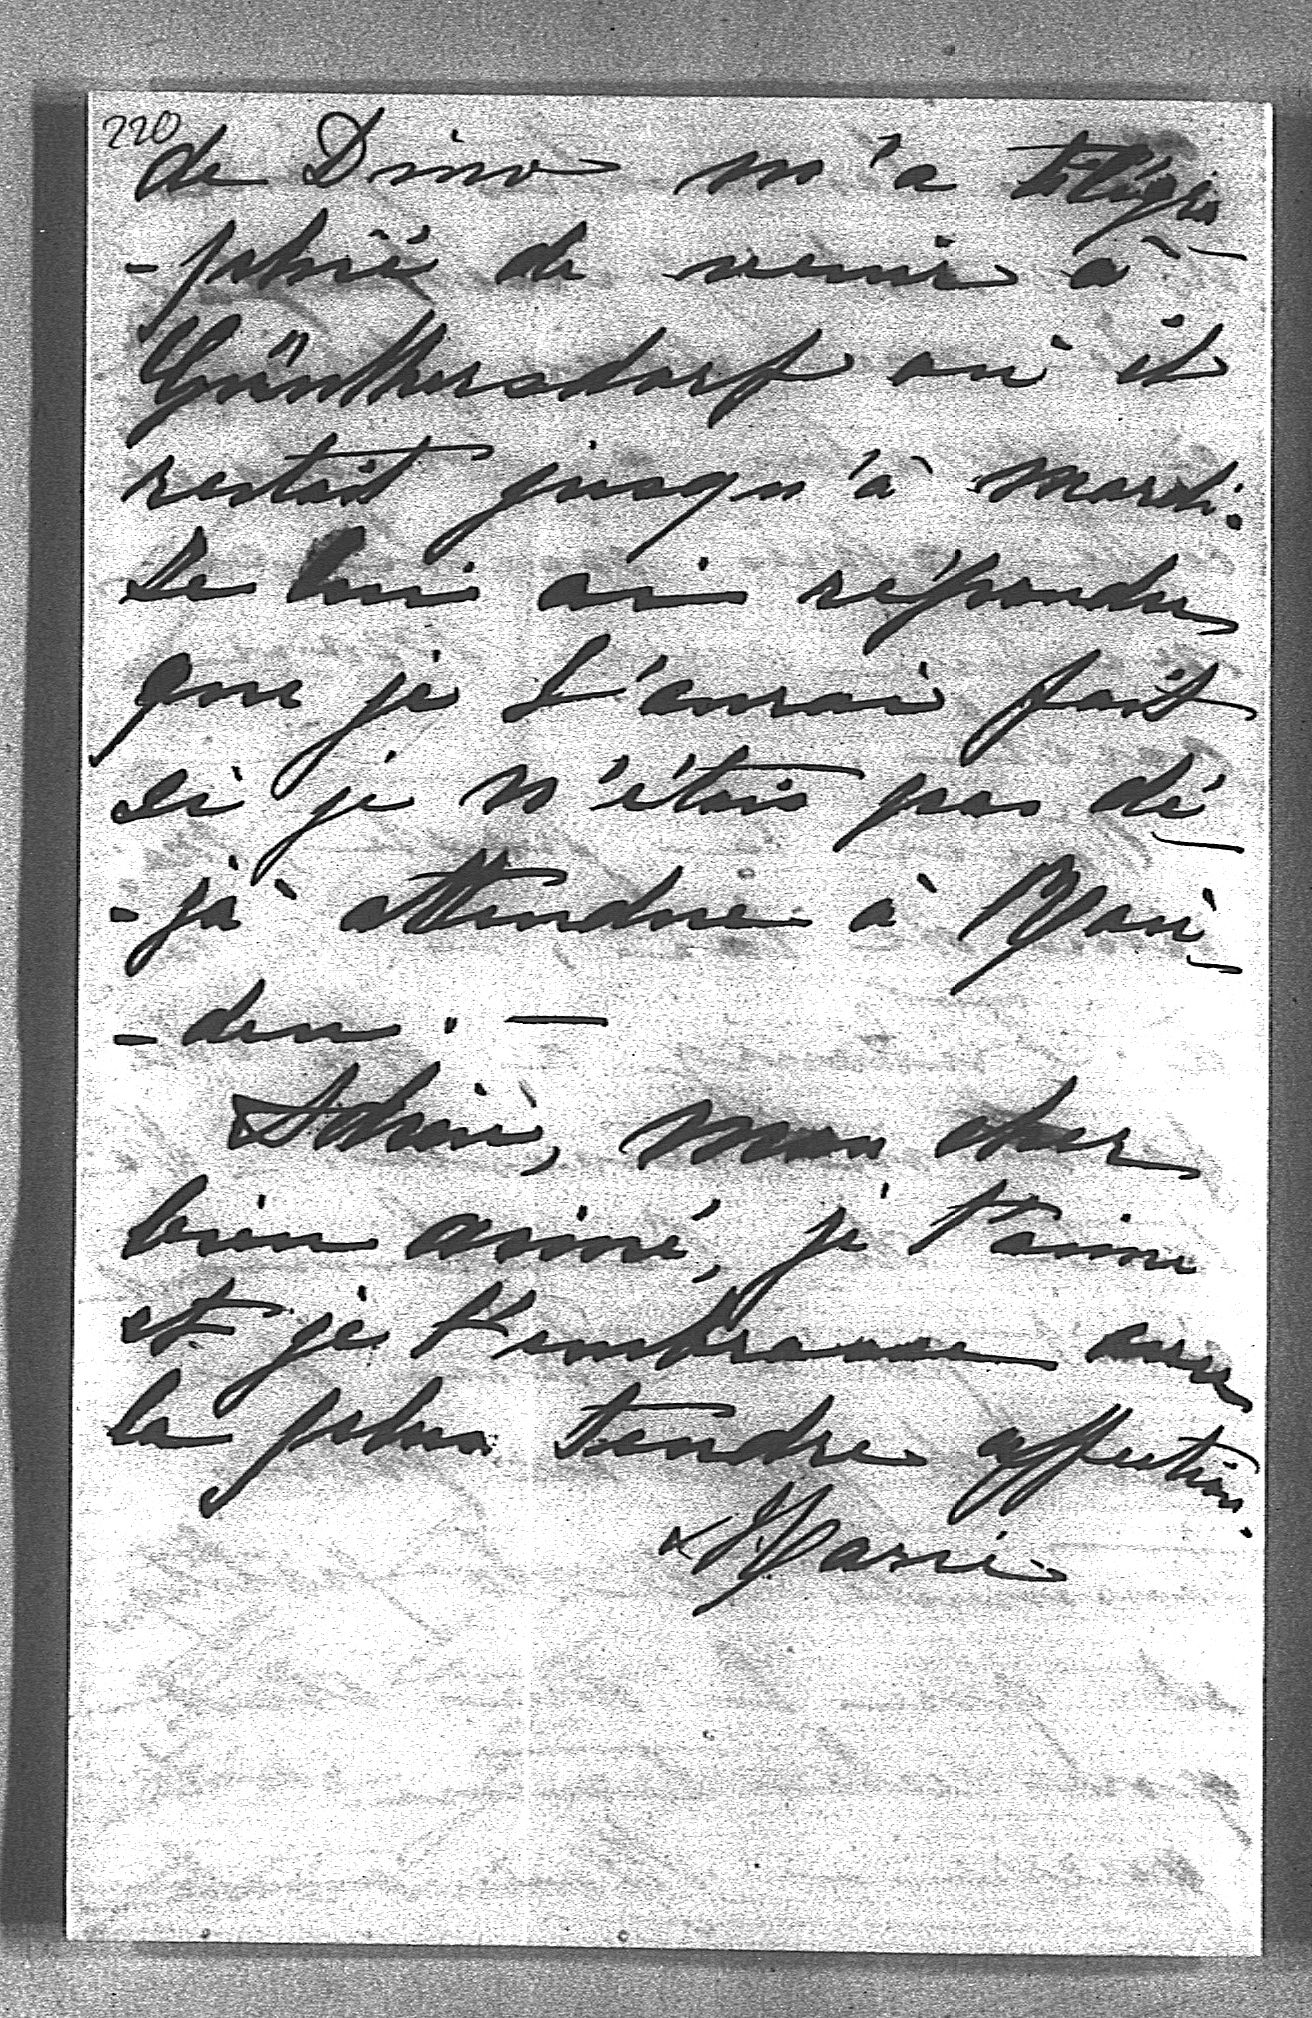 220
de Dino m'a télégra-
-phié de venir à
Günthersdorf où il
restait jusqu'à mardi.
Je lui ai répondu
que je l'aurai fait
si je n'étais pas dé-
-jà attendue à Mari-
-den. —
Adieu, mon cher
bien aimé, je t'aime
et je t'embrasse avec
la plus tendre affection.
Marie